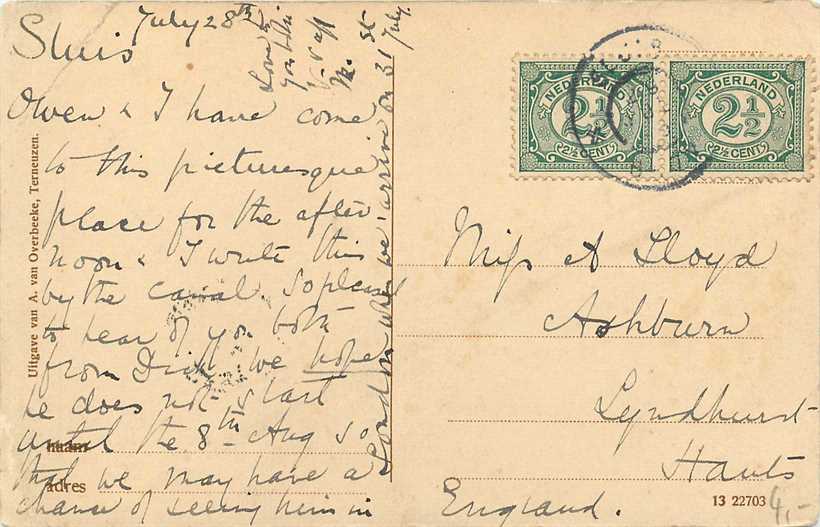 Sluis July 28th
Owen & I have come
to this picturesque
place for the after
noon & I write this
by the canal. So pleased
to hear of you both
from Dick we hope
he does not start
until the 8th Aug so
that we may have a
chance of seeing him in
London when we arrive on 31
July.
Love
M.
Uitgave van A. van Overbeeke, Terneuzen.
naam
adres
NEDERLAND
2½
2½ CENT
NEDERLAND
2½
2½ CENT
Miss A Lloyd
Ashburn
Lyndhurst
Hants
England.
13 22703
4,-